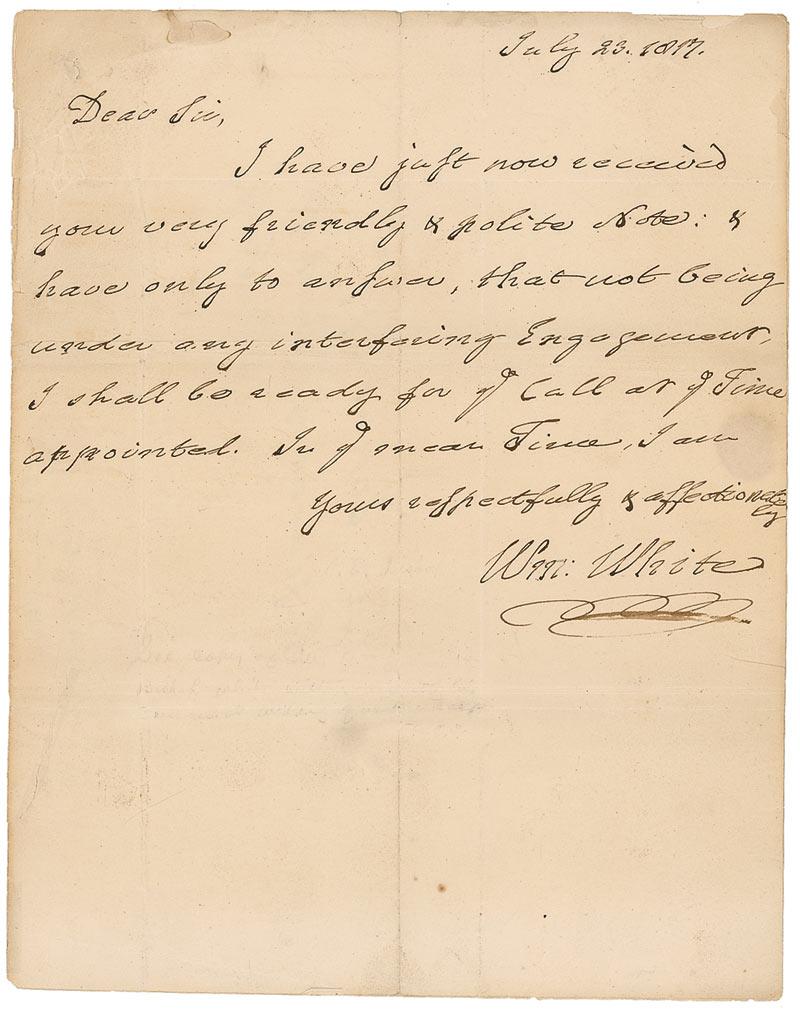 July 23. 1817.
Dear Sir,
I have just now received
your very friendly & polite Note: &
have only to anſwer, that not being
under any interfering Engagement,
I shall be ready for yͤ Call at yͤ Time
appointed. In yͤ mean Time, I am
Yours reſpectfully & affectionately
Wm: White